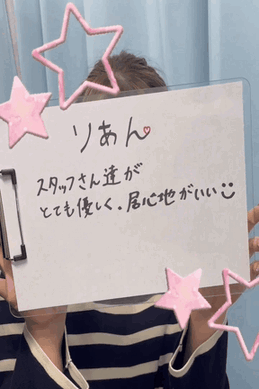 りあん♡
スタッフさん達が
とても優しく、居心地がいい☺